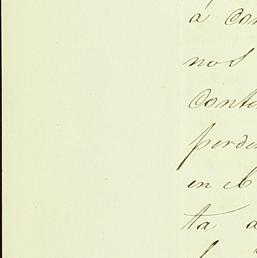 á con
nos
conti
perde
en el
ta a